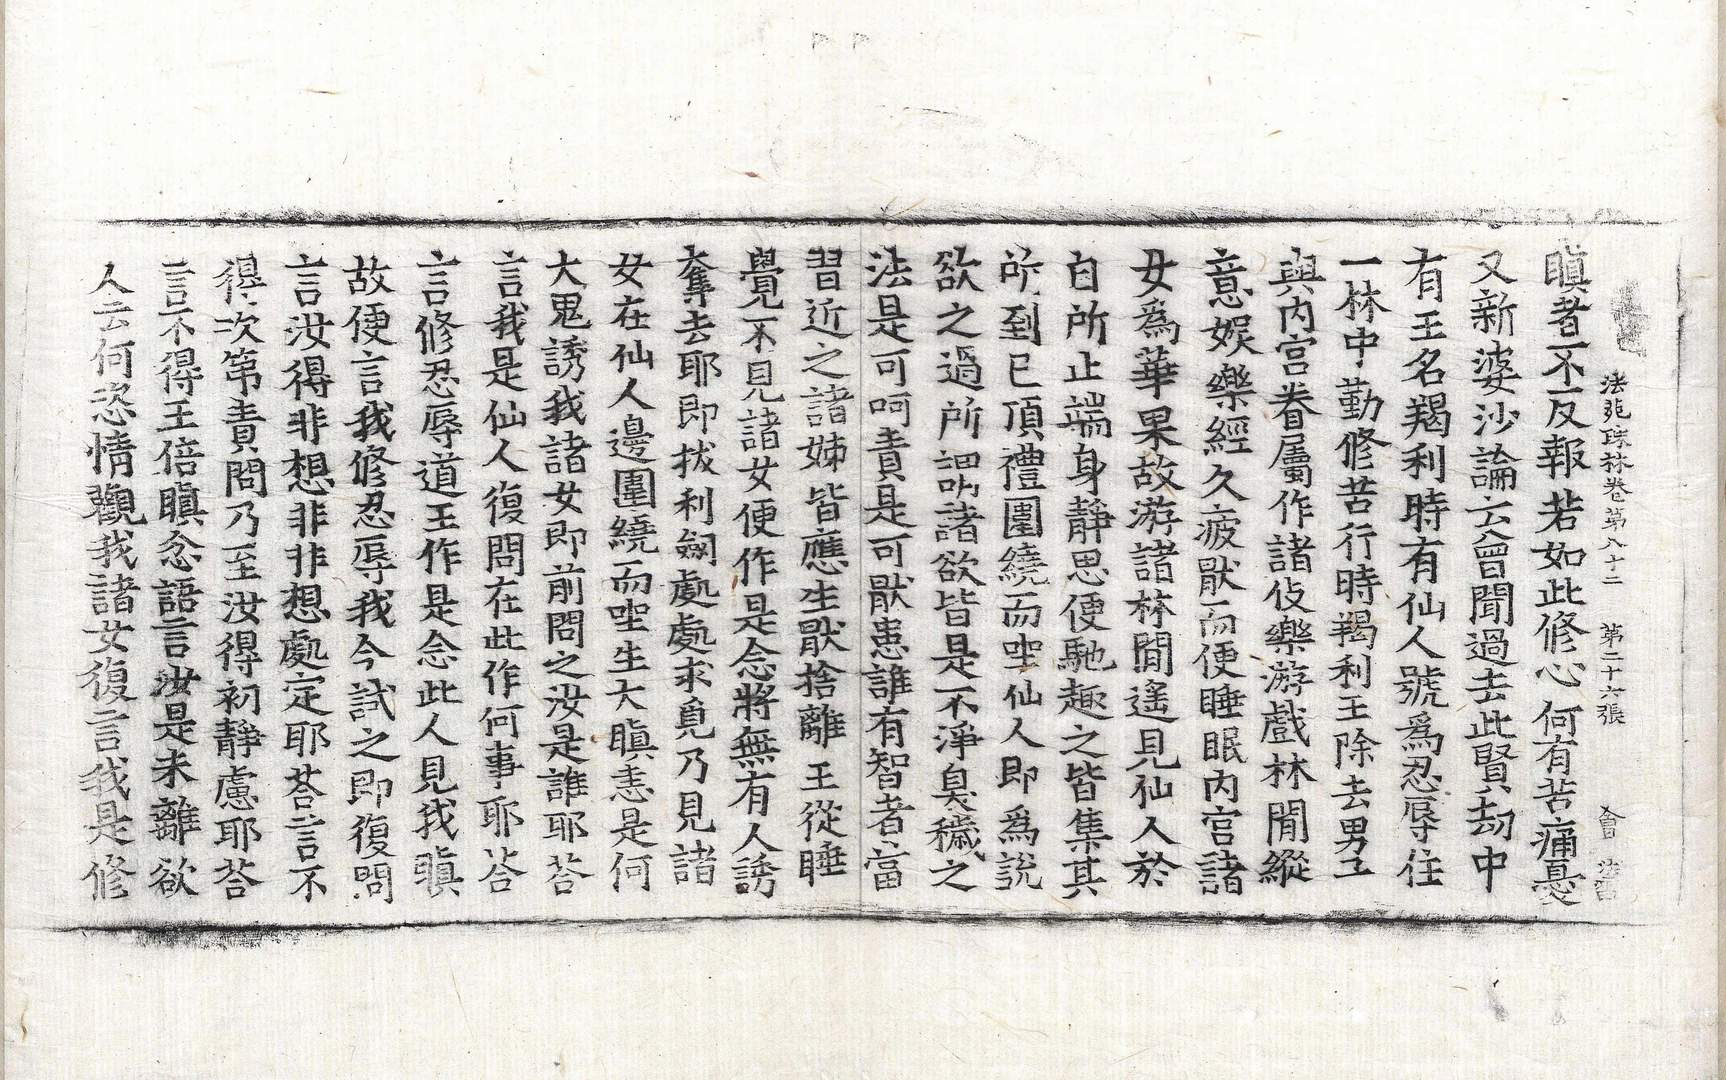 法苑珠林卷第八十二 第二十六張
瞋者不反報若如此修心何有苦痛憂
又新婆沙論云曾聞過去此賢劫中
有王名羯利時有仙人號爲忍辱住
一林中勤修苦行時羯利王除去男子
與內宮眷屬作諸伎樂游戲林間縱
意娛樂經久疲猒而便睡眠內宮諸
女爲華果故游諸林間遙見仙人於
自所止端身靜思便馳趣之皆集其
所到已頂禮圍繞而坐仙人即爲說
欲之過所謂諸欲皆是不淨臭穢之
法是可呵責是可猒患誰有智者當
習近之諸姊皆應生猒捨離王從睡
覺不見諸女便作是念將無有人誘
奪去耶即拔利劒處處求覓乃見諸
女在仙人邊圍繞而坐生大瞋恚是何
大鬼誘我諸女即前問之汝是誰耶荅
言我是仙人復問在此作何事耶荅
言修忍辱道王作是念此人見我瞋
故便言我修忍辱我今試之即復問
言汝得非想非非想處定耶荅言不
得次第責問乃至汝得初靜慮耶荅
言不得王倍瞋忿語言汝是未離欲
人云何恣情觀我諸女復言我是修